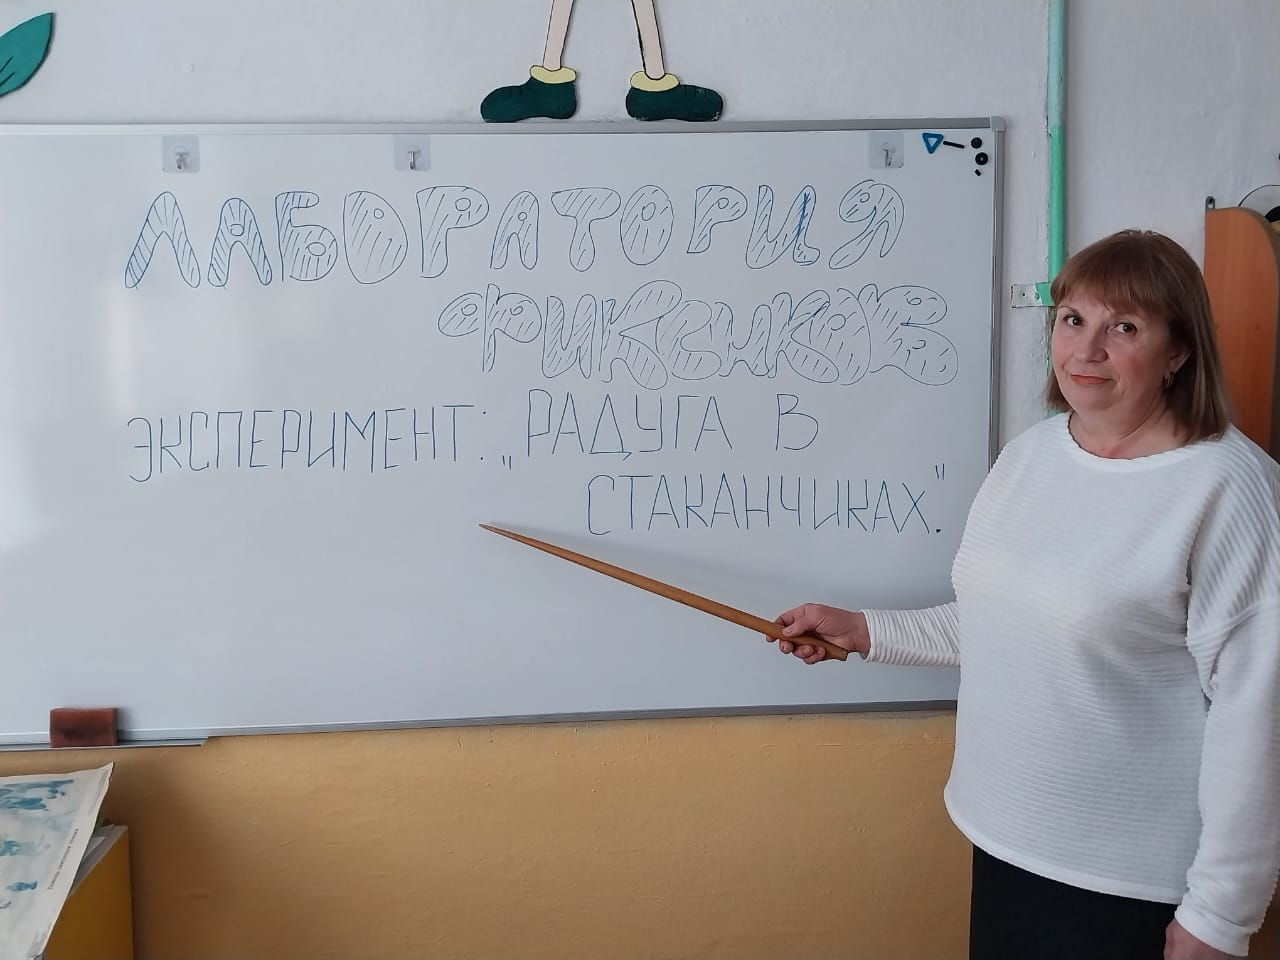 ЛАБОРАТОРИЯ
ФИКСИКОВ
ЭКСПЕРИМЕНТ: „РАДУГА В
СТАКАНЧИКАХ."